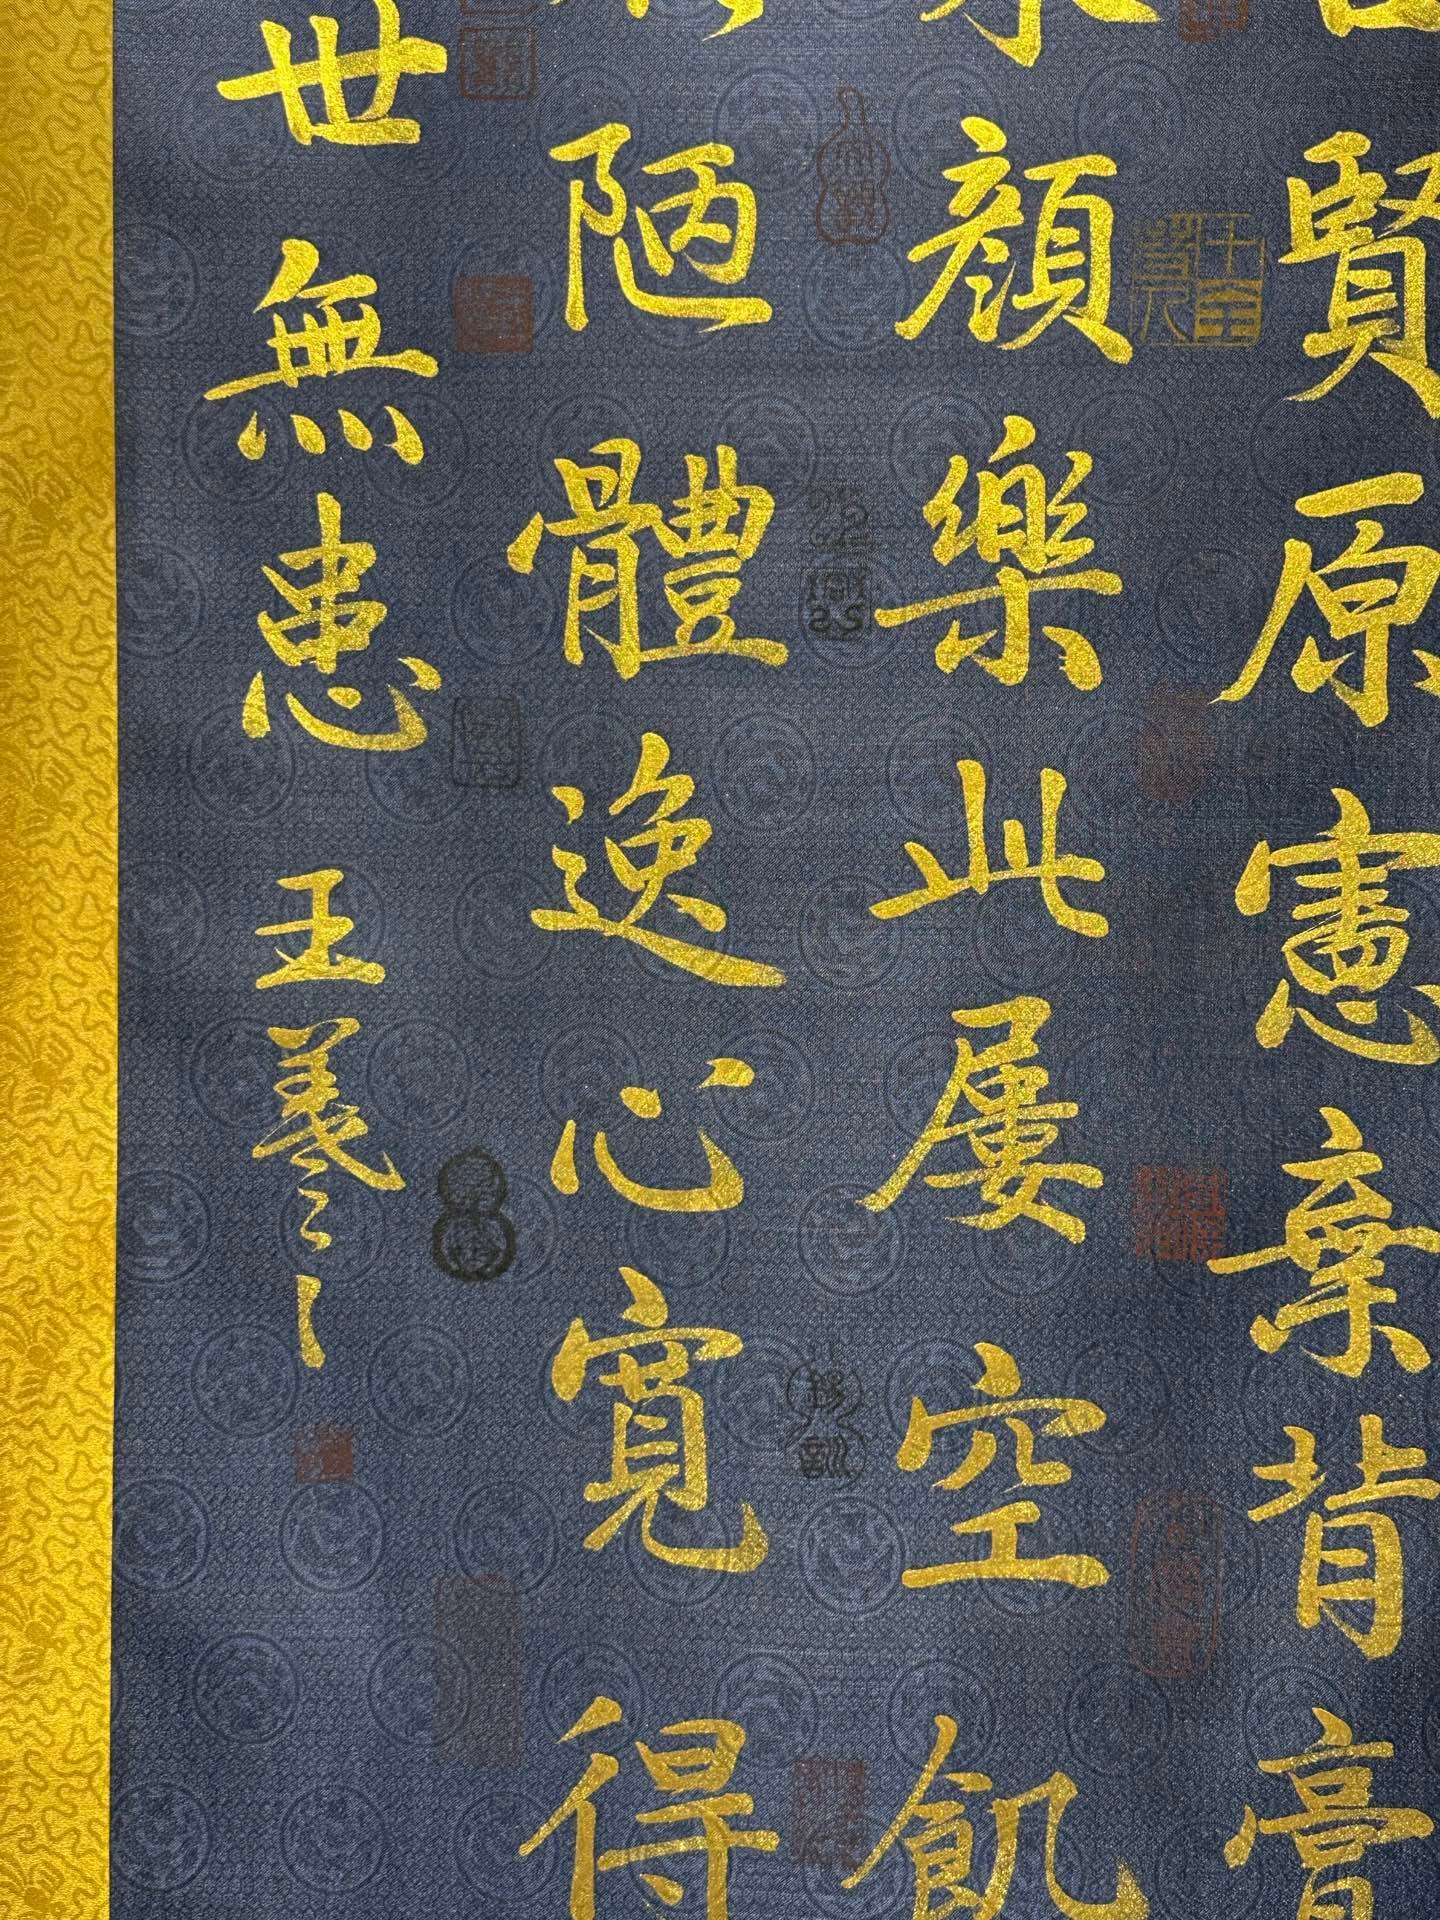 賢原憲棄背膏
顏樂此屢空飢
陋體逸心寬得
世無患
王羲之